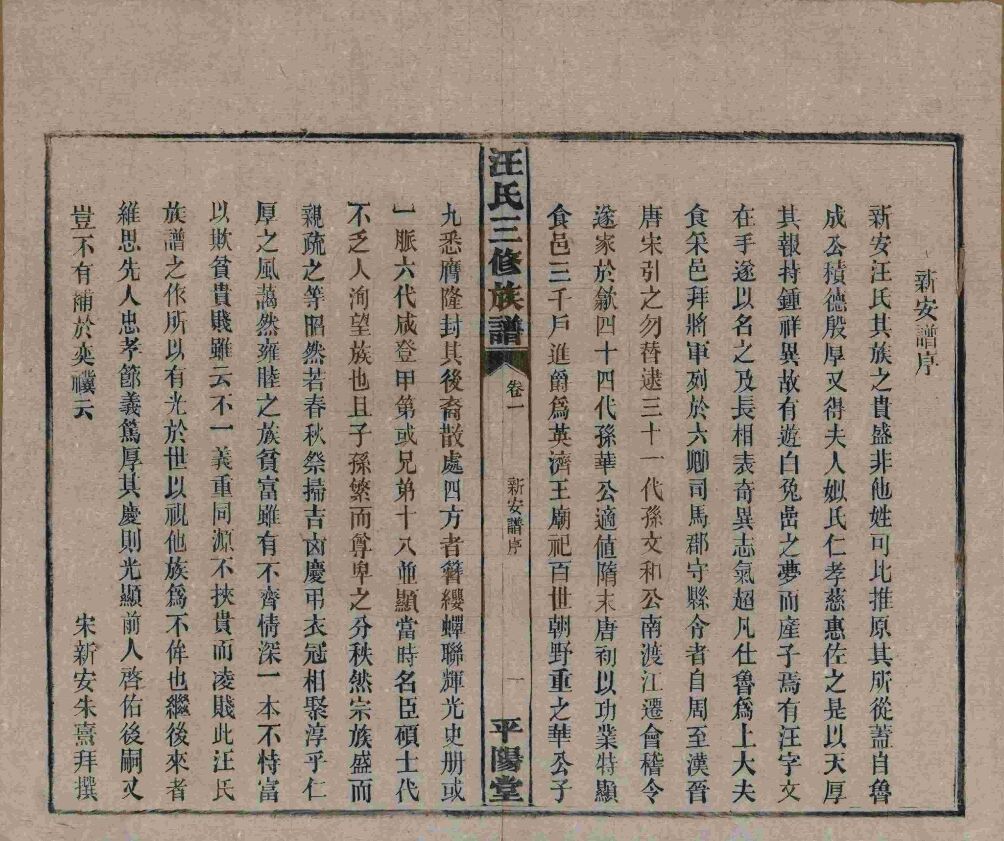 新安譜序
新安汪氏其族之貴盛非他姓可比推原其所從蓋自魯
成公積德殷厚又得夫人姒氏仁孝慈惠佐之是以天厚
其報持鍾祥異故有遊白兔嵒之夢而産子焉有汪字文
在手遂以名之及長相表奇異志氣超凡仕魯爲上大夫
食采邑拜將軍列於六卿司馬郡守縣令者自周至漢晉
唐宋引之勿替逮三十一代孫文和公南渡江遷會稽令
遂家於歙四十四代孫華公適値隋末唐初以功業特顯
食邑三千戶進爵爲英濟王廟祀百世朝野重之華公子
汪氏三修族譜
卷一
新安譜序
一
平陽堂
九悉膺隆封其後裔散處四方者簪纓蟬聯輝光史册或
一脈六代咸登甲第或兄弟十八並顯當時名臣碩士代
不乏人洵望族也且子孫繁而尊卑之分秩然宗族盛而
親疏之等昭然若春秋祭掃吉凶慶弔衣冠相聚淳乎仁
厚之風藹然雍睦之族貧富雖有不齊情深一本不恃富
以欺貧貴賤雖云不一義重同源不挾貴而凌賤此汪氏
族譜之作所以有光於世以視他族爲不侔也繼後來者
維思先人忠孝節義篤厚其慶則光顯前人啓佑後嗣又
豈不有補於奕禩云
宋新安朱熹拜撰